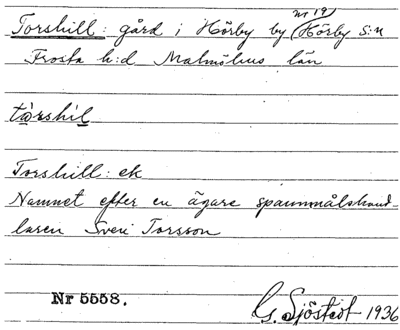 Torshill: gård i Hörby by (nr 19) Hörby s:n
Frosta h:d Malmöhus län
tòrshil
Torshill: ek
Namnet efter en ägare spannmålshand-
laren Sven Torsson
Nr 5558.
G. Sjöstedt 1936